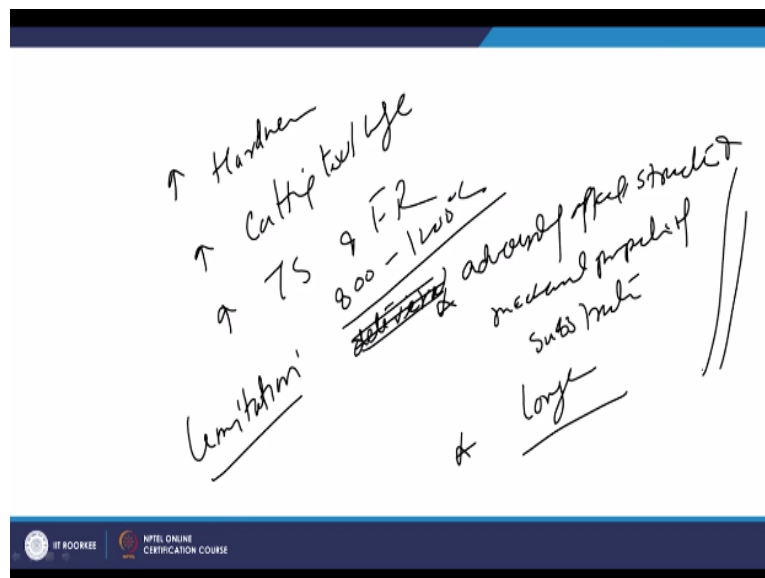 ↑ Hardness
↑ Cutting tool life
↑ TS & FR
800 - 1200°C
Limitation
adversely affects structure &
mechanical properties of
substrate
* longer
IIT ROORKEE
NPTEL ONLINE
CERTIFICATION COURSE